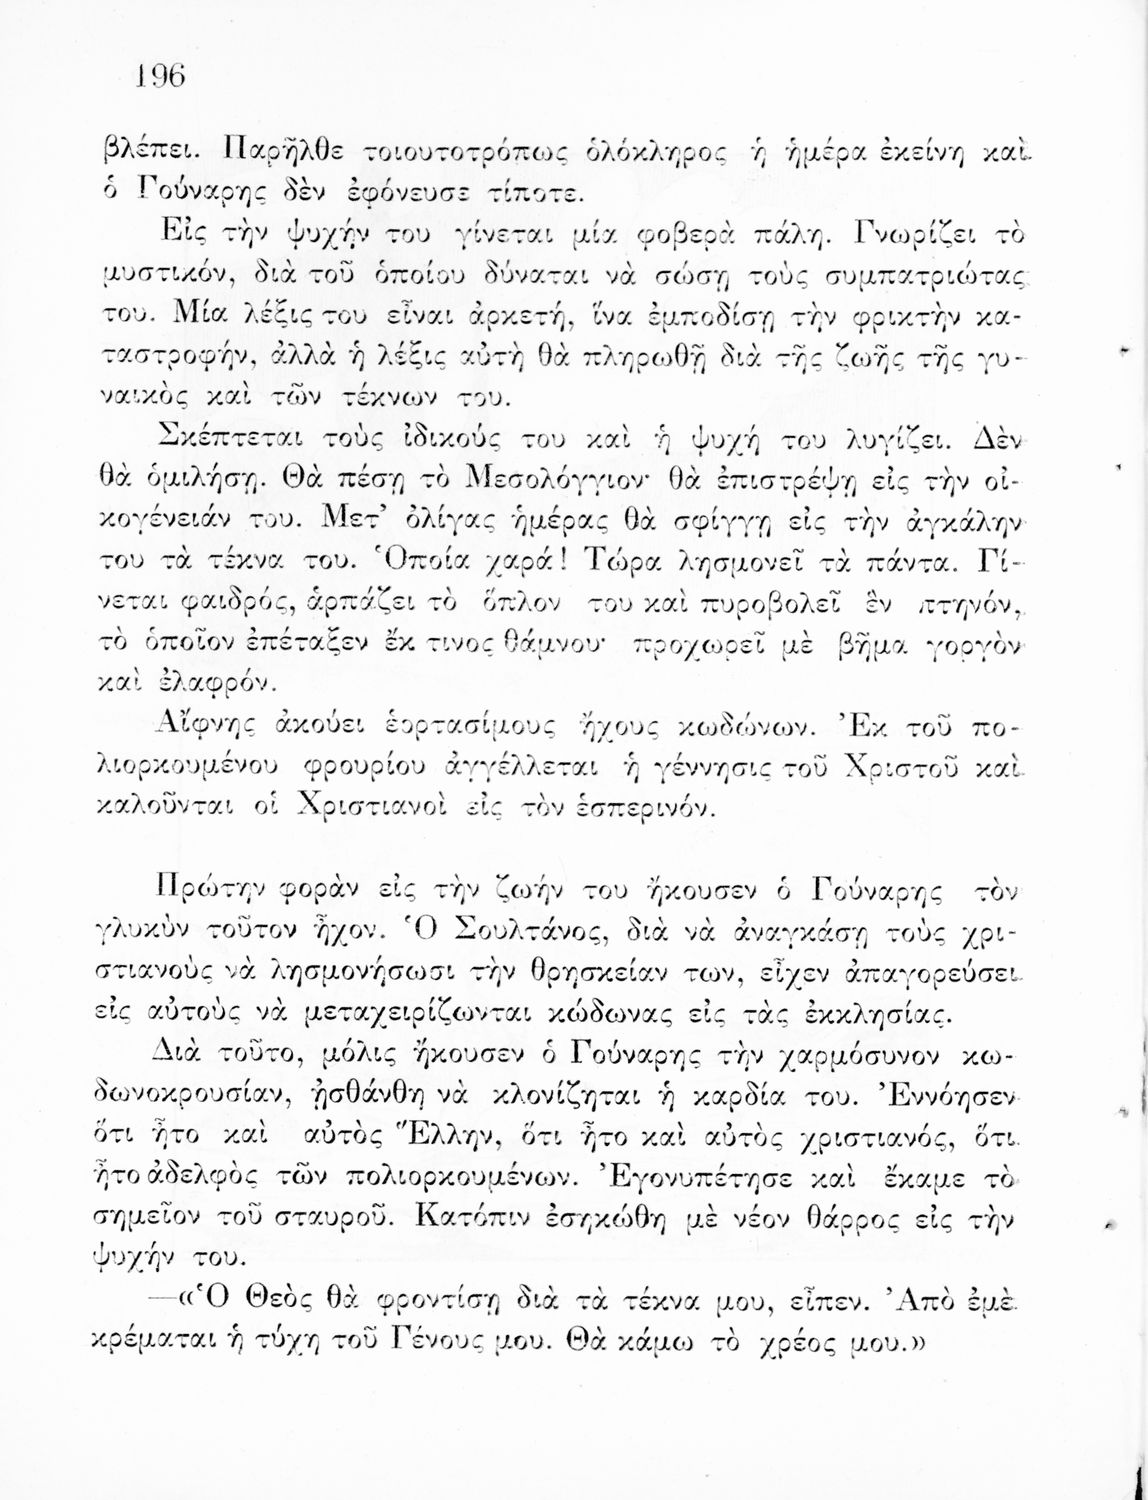 196
βλέπει. Παρῆλθε τοιουτοτρόπως ὁλόκληρος ἡ ἡμέρα ἐκείνη καὶ
ὁ Γούναρης δὲν ἐφόνευσε τίποτε.
Εἰς τὴν ψυχήν του γίνεται μία φοβερὰ πάλη. Γνωρίζει τὸ
μυστικόν, διὰ τοῦ ὁποίου δύναται νὰ σώσῃ τοὺς συμπατριώτας
του. Μία λέξις του εἶναι ἀρκετή, ἵνα ἐμποδίσῃ τὴν φρικτὴν κα-
ταστροφήν, ἀλλὰ ἡ λέξις αὐτὴ θὰ πληρωθῇ διὰ τῆς ζωῆς τῆς γυ-
ναικὸς καὶ τῶν τέκνων του.
Σκέπτεται τοὺς ἰδικούς του καὶ ἡ ψυχή του λυγίζει. Δὲν
θὰ ὁμιλήσῃ. Θὰ πέσῃ τὸ Μεσολόγγιον· θὰ ἐπιστρέψῃ εἰς τὴν οἰ-
κογένειάν του. Μετ' ὀλίγας ἡμέρας θὰ σφίγγῃ εἰς τὴν ἀγκάλην
του τὰ τέκνα του. Ὁποία χαρά! Τώρα λησμονεῖ τὰ πάντα. Γί-
νεται φαιδρός, ἁρπάζει τὸ ὅπλον του καὶ πυροβολεῖ ἓν πτηνόν,
τὸ ὁποῖον ἐπέταξεν ἔκ τινος θάμνου· προχωρεῖ μὲ βῆμα γοργὸν
καὶ ἐλαφρόν.
Αἴφνης ἀκούει ἑορτασίμους ἤχους κωδώνων. Ἐκ τοῦ πο-
λιορκουμένου φρουρίου ἀγγέλλεται ἡ γέννησις τοῦ Χριστοῦ καὶ
καλοῦνται οἱ Χριστιανοὶ εἰς τὸν ἑσπερινόν.
Πρώτην φορὰν εἰς τὴν ζωήν του ἤκουσεν ὁ Γούναρης τὸν
γλυκὺν τοῦτον ἦχον. Ὁ Σουλτάνος, διὰ νὰ ἀναγκάσῃ τοὺς χρι-
στιανοὺς νὰ λησμονήσωσι τὴν θρησκείαν των, εἶχεν ἀπαγορεύσει
εἰς αὐτοὺς νὰ μεταχειρίζωνται κώδωνας εἰς τὰς ἐκκλησίας.
Διὰ τοῦτο, μόλις ἤκουσεν ὁ Γούναρης τὴν χαρμόσυνον κω-
δωνοκρουσίαν, ᾐσθάνθη νὰ κλονίζηται ἡ καρδία του. Ἐννόησεν
ὅτι ἦτο καὶ αὐτὸς Ἕλλην, ὅτι ἦτο καὶ αὐτὸς χριστιανός, ὅτι
ἦτο ἀδελφὸς τῶν πολιορκουμένων. Ἐγονυπέτησε καὶ ἔκαμε τὸ
σημεῖον τοῦ σταυροῦ. Κατόπιν ἐσηκώθη μὲ νέον θάρρος εἰς τὴν
ψυχήν του.
—«Ὁ Θεὸς θὰ φροντίσῃ διὰ τὰ τέκνα μου, εἶπεν. Ἀπὸ ἐμὲ
κρέμαται ἡ τύχη τοῦ Γένους μου. Θὰ κάμω τὸ χρέος μου.»